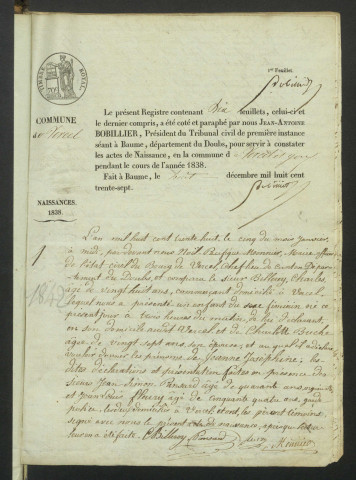 1er Feuillet.
TIMBRE ROYAL
COMMUNE
de Vercel
NAISSANCES.
1838.
Le présent Registre contenant Dix feuillets, celui-ci et
le dernier compris, a été coté et paraphé par nous JEAN-ANTOINE
BOBILLIER, Président du Tribunal civil de première instance
séant à Baume, département du Doubs, pour servir à constater
les actes de Naissance, en la commune de Vercel
pendant le cours de l'année 1838.
Fait à Baume, le décembre mil huit cent
trente-sept.
1
L'an mil huit cent trente huit, le cinq du mois janvier,
à midi, par devant nous Monnier, Maire officier
de l'état civil du Bourg de Vercel, chef lieu de canton Dépar-
tement du Doubs, est comparu le sieur Billerey, Charles,
âgé de vingt huit ans, domicilié à Vercel,
lequel nous a présenté un enfant du sexe féminin né ce
présent jour à heures du matin, de lui déclarant,
en son domicile audit Vercel et de
âgée de vingt sept ans son épouse, et auquel il a déclaré
vouloir donner les prénoms de Jeanne Josephine, les
dites déclarations et présentation faites en présence des
sieurs Jean Simon Renaud âgé de quarante ans
et Jean Louis fleury âgé de cinquante quatre ans, garde
les deux domiciliés à Vercel et ont, les père et témoins
signé avec nous le présent acte de naissance, après que lecture
leur en a été faite. Billerey Renaud fleury Monnier